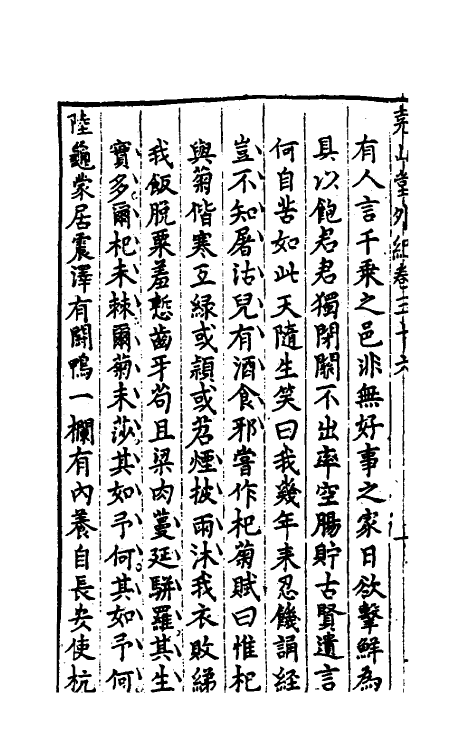 堯山堂外紀卷三十六
有人言千乘之邑非無好事之家日欲擊鮮為
具以飽君君獨閉關不出率空腸貯古賢遺言
何自苦如此天隨生笑曰我幾年来忍饑誦經
豈不知屠沽兒有酒食邪嘗作杞菊賦曰惟杞
與菊偕寒互綠或頴或苕煙披雨沐我衣敗綈
我飯脫粟羞慙齒牙苟且粱肉蔓延駢羅其生
實多爾杞未棘爾菊未莎其如予何其如予何
陸龜蒙居震澤有鬪鴨一欄有內養自長安使杭